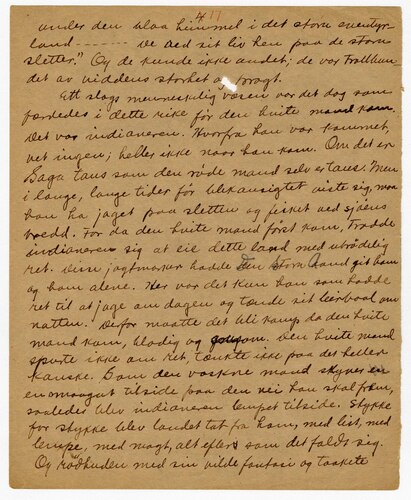 411
under den blaa himmel i det store eventyr-
land ------- de aed sit liv hen paa de store
sletter." Og de kunde ikke andet; de var trollbun
det av viddens storhet og pragt.
Ett slags menneskelig væsen var det dog som
færdedes i dette rike før den hvite mand kom.
Det var indianeren. Hvorfra han var kommet,
vet ingen; heller ikke naar han kom. Om det er
Saga taus som den røde mand selv er taus. Men
i lange, lange tider før blekansigtet viste sig, maa
han ha jaget paa sletten og fisket ved sjøens
bredd. For da den hvite mand først kom, trodde
indianeren sig at eie dette land med ubrødelig
ret. Disse jagtmarker hadde Den Store Aand git ham
og ham alene. Her var det kun han som hadde
ret til at jage om dagen og tænde sit leirbaal om
natten. Derfor maatte det bli kamp da den hvite
mand kom, blodig og grusom. Den hvite mand
spurte ikke om ret, tænkte ikke paa det heller
kanske. Som den voksne mand skyver en
en smaagut tilside paa den vei han skal fram,
saaledes blev indianeren lempet tilside. Stykke
for stykke blev landet tat fra ham, med list, med
lempe, med magt, alt eftersom det faldt sig.
Og rødhuden med sin vilde fantasi og taakete